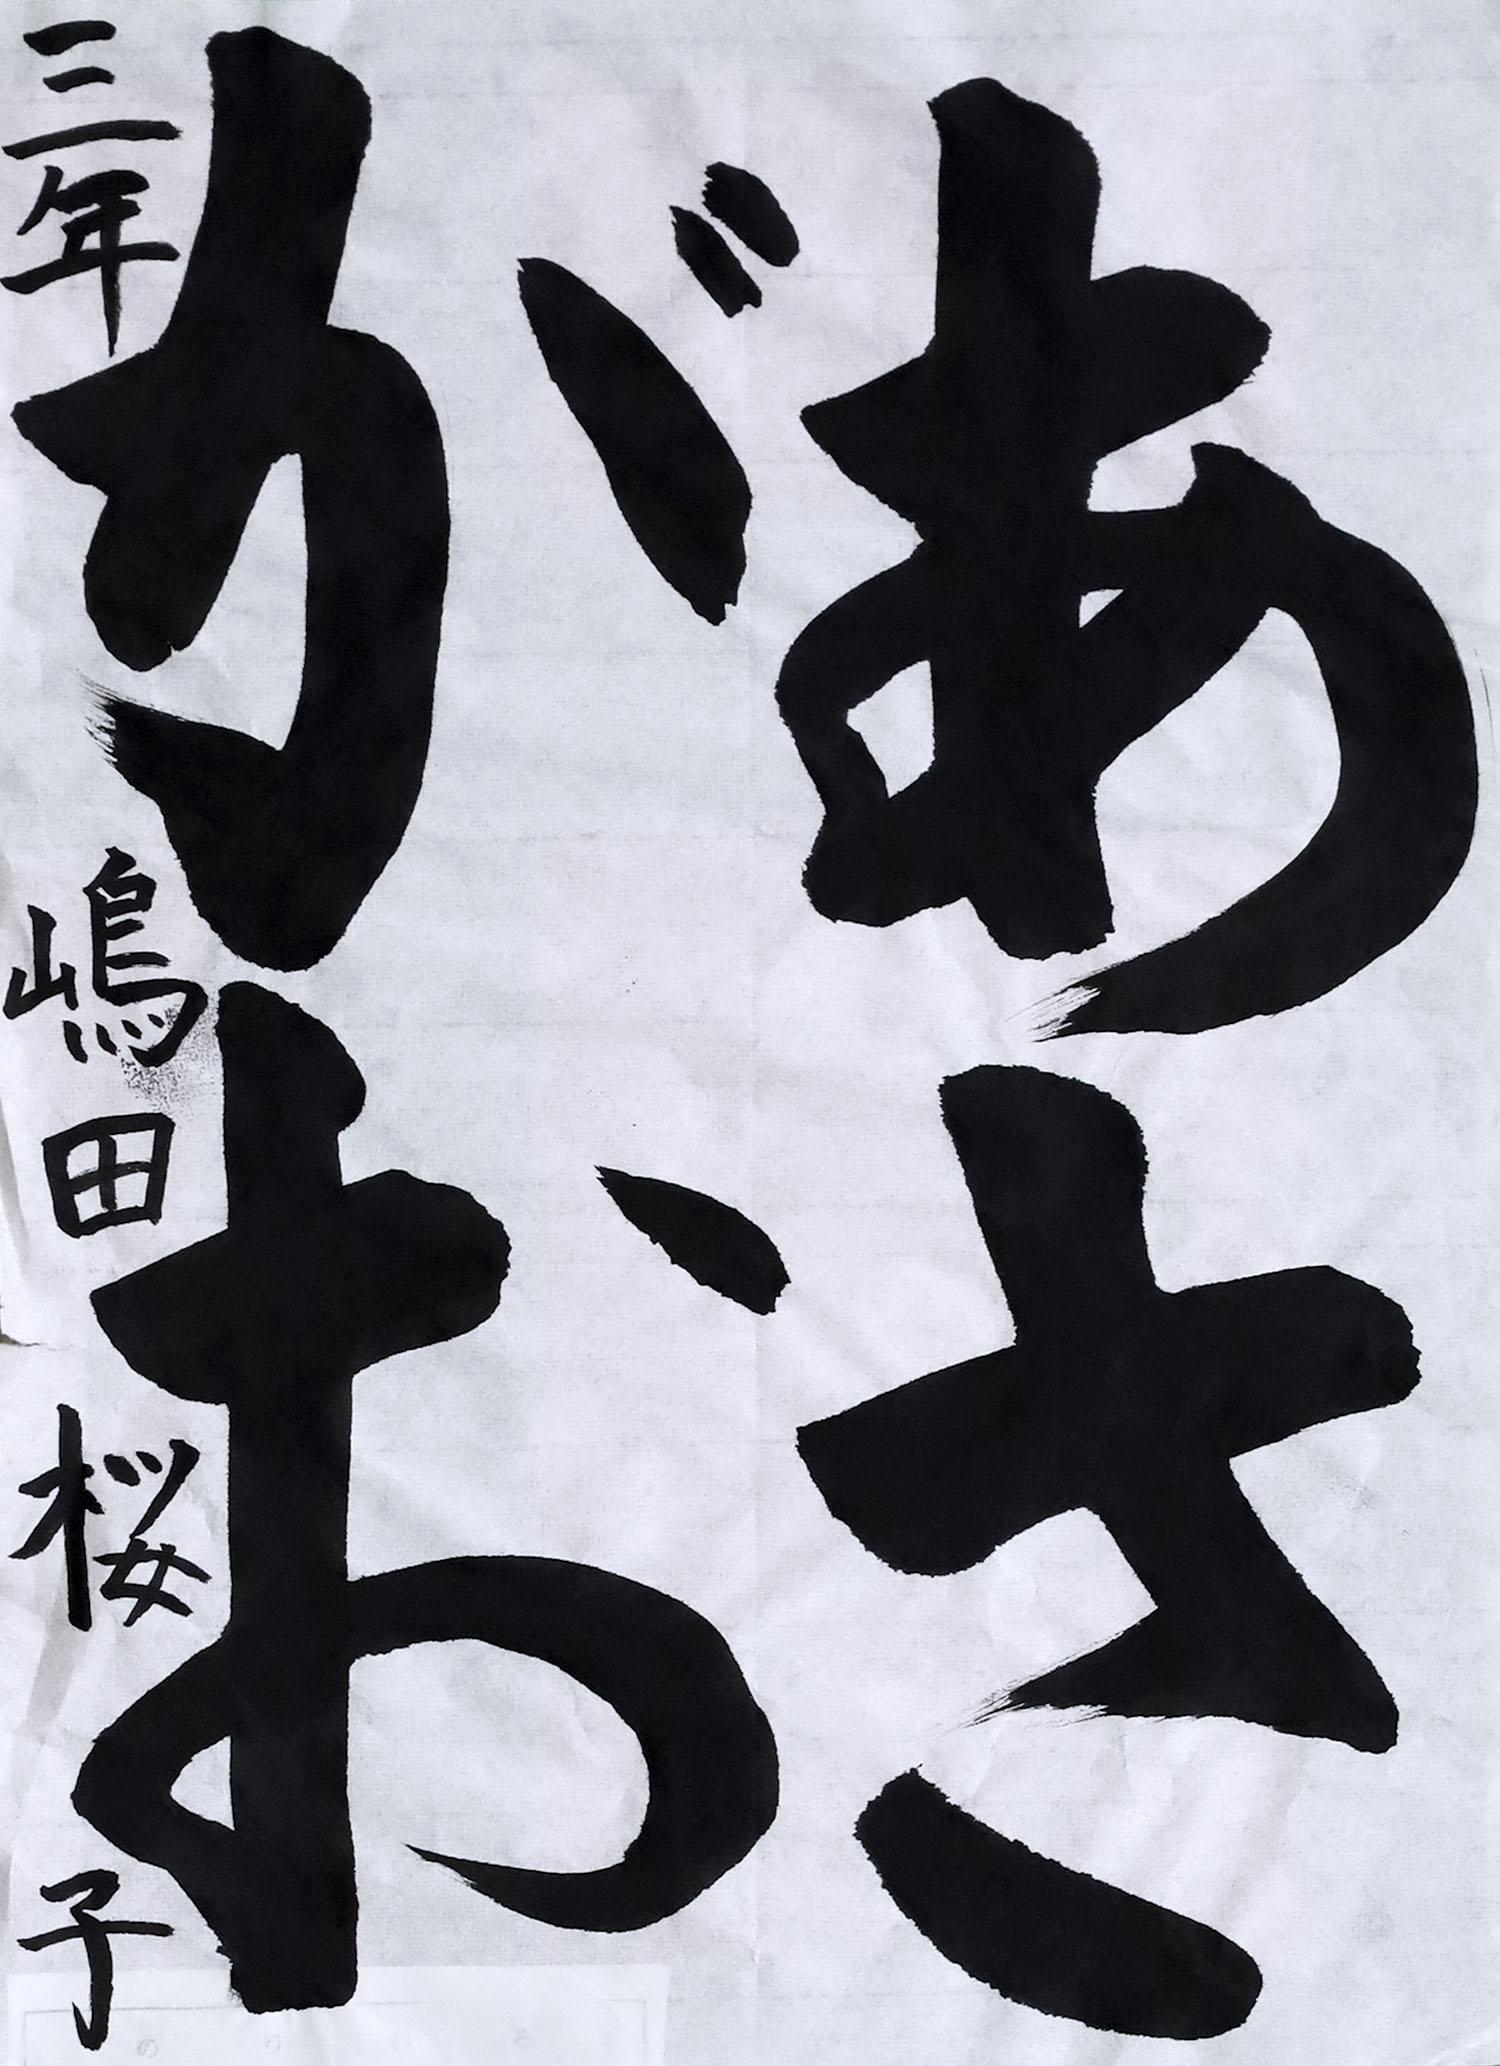 あさ
がお
三年 嶋田 桜子